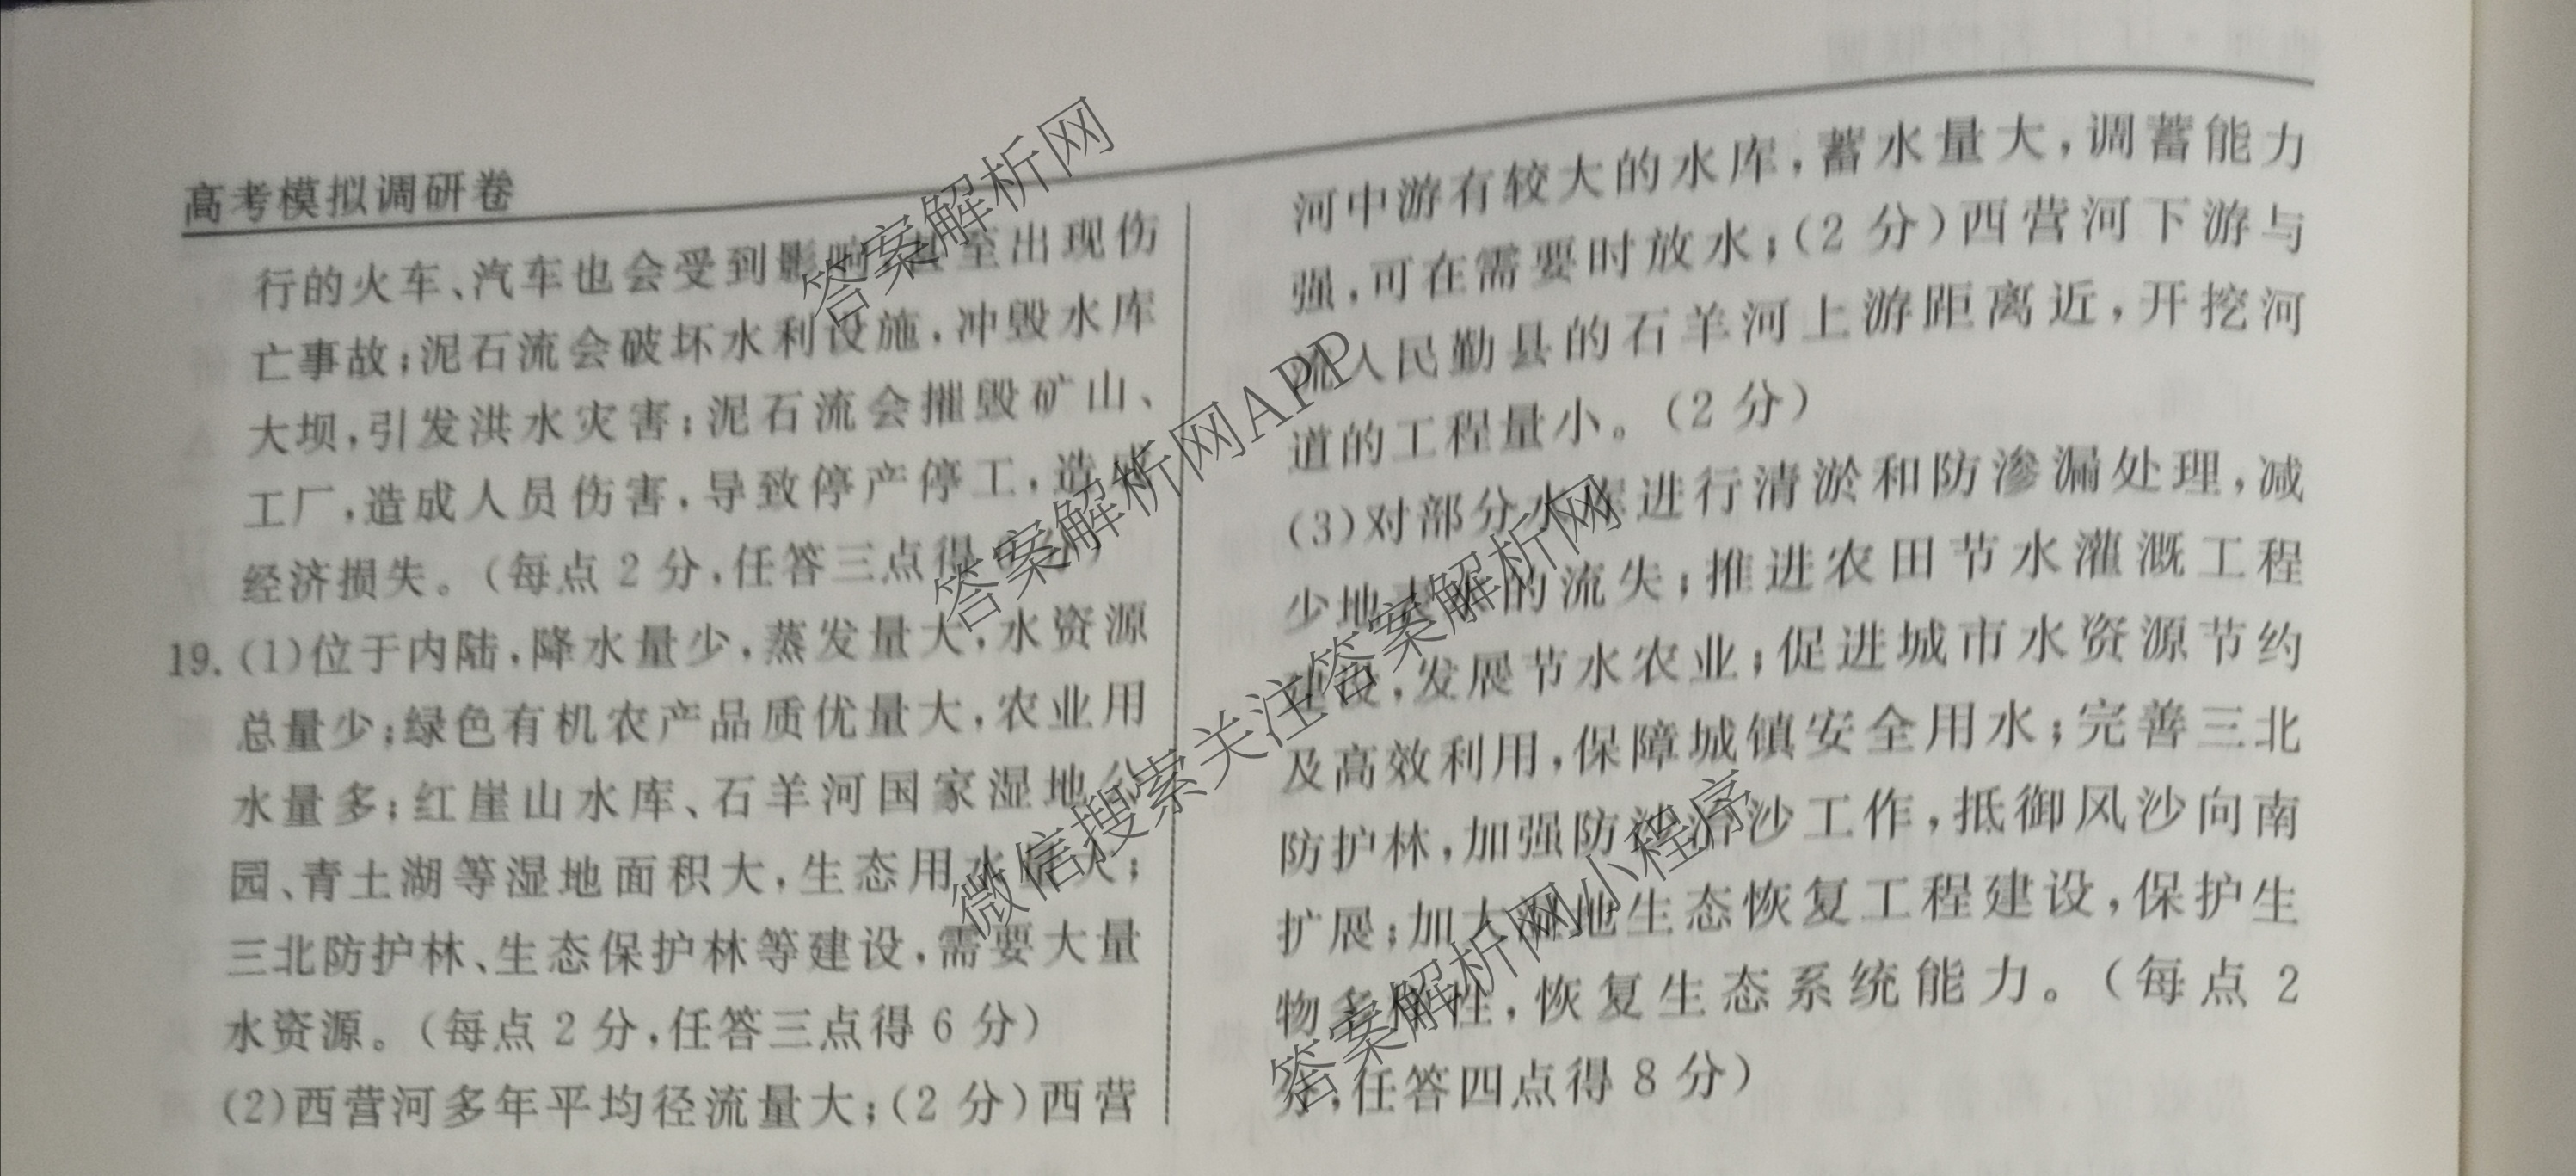 高考模拟调研卷
行的火车、汽车也会受到影响,甚至出现伤
亡事故;泥石流会破坏水利设施,冲毁水库
大坝,引发洪水灾害;泥石流会摧毁矿山、
工厂,造成人员伤害,导致停产停工,造成
经济损失。(每点2分,任答三点得
19.(1)位于内陆,降水量少,蒸发量大,水资源
总量少;绿色有机农产品质优量大,农业用
水量多;红崖山水库、石羊河国家湿地公
园、青土湖等湿地面积大,生态用水量大;
三北防护林、生态保护林等建设,需要大量
水资源。(每点2分,任答三点得6分)
(2)西营河多年平均径流量大;(2分)西营
河中游有较大的水库,蓄水量大,调蓄能力
强,可在需要时放水;(2分)西营河下游与
流入民勤县的石羊河上游距离近,开挖河
道的工程量小。(2分)
(3)对部分水库进行清淤和防渗漏处理,减
少地表水的流失;推进农田节水灌溉工程
建设,发展节水农业;促进城市水资源节约
及高效利用,保障城镇安全用水;完善三北
防护林,加强防沙治沙工作,抵御风沙向南
扩展;加大湿地生态恢复工程建设,保护生
物多样性,恢复生态系统能力。(每点2
分,任答四点得8分)
答案解析网
答案解析网APP
微信搜索关注答案解析网
答案解析网小程序